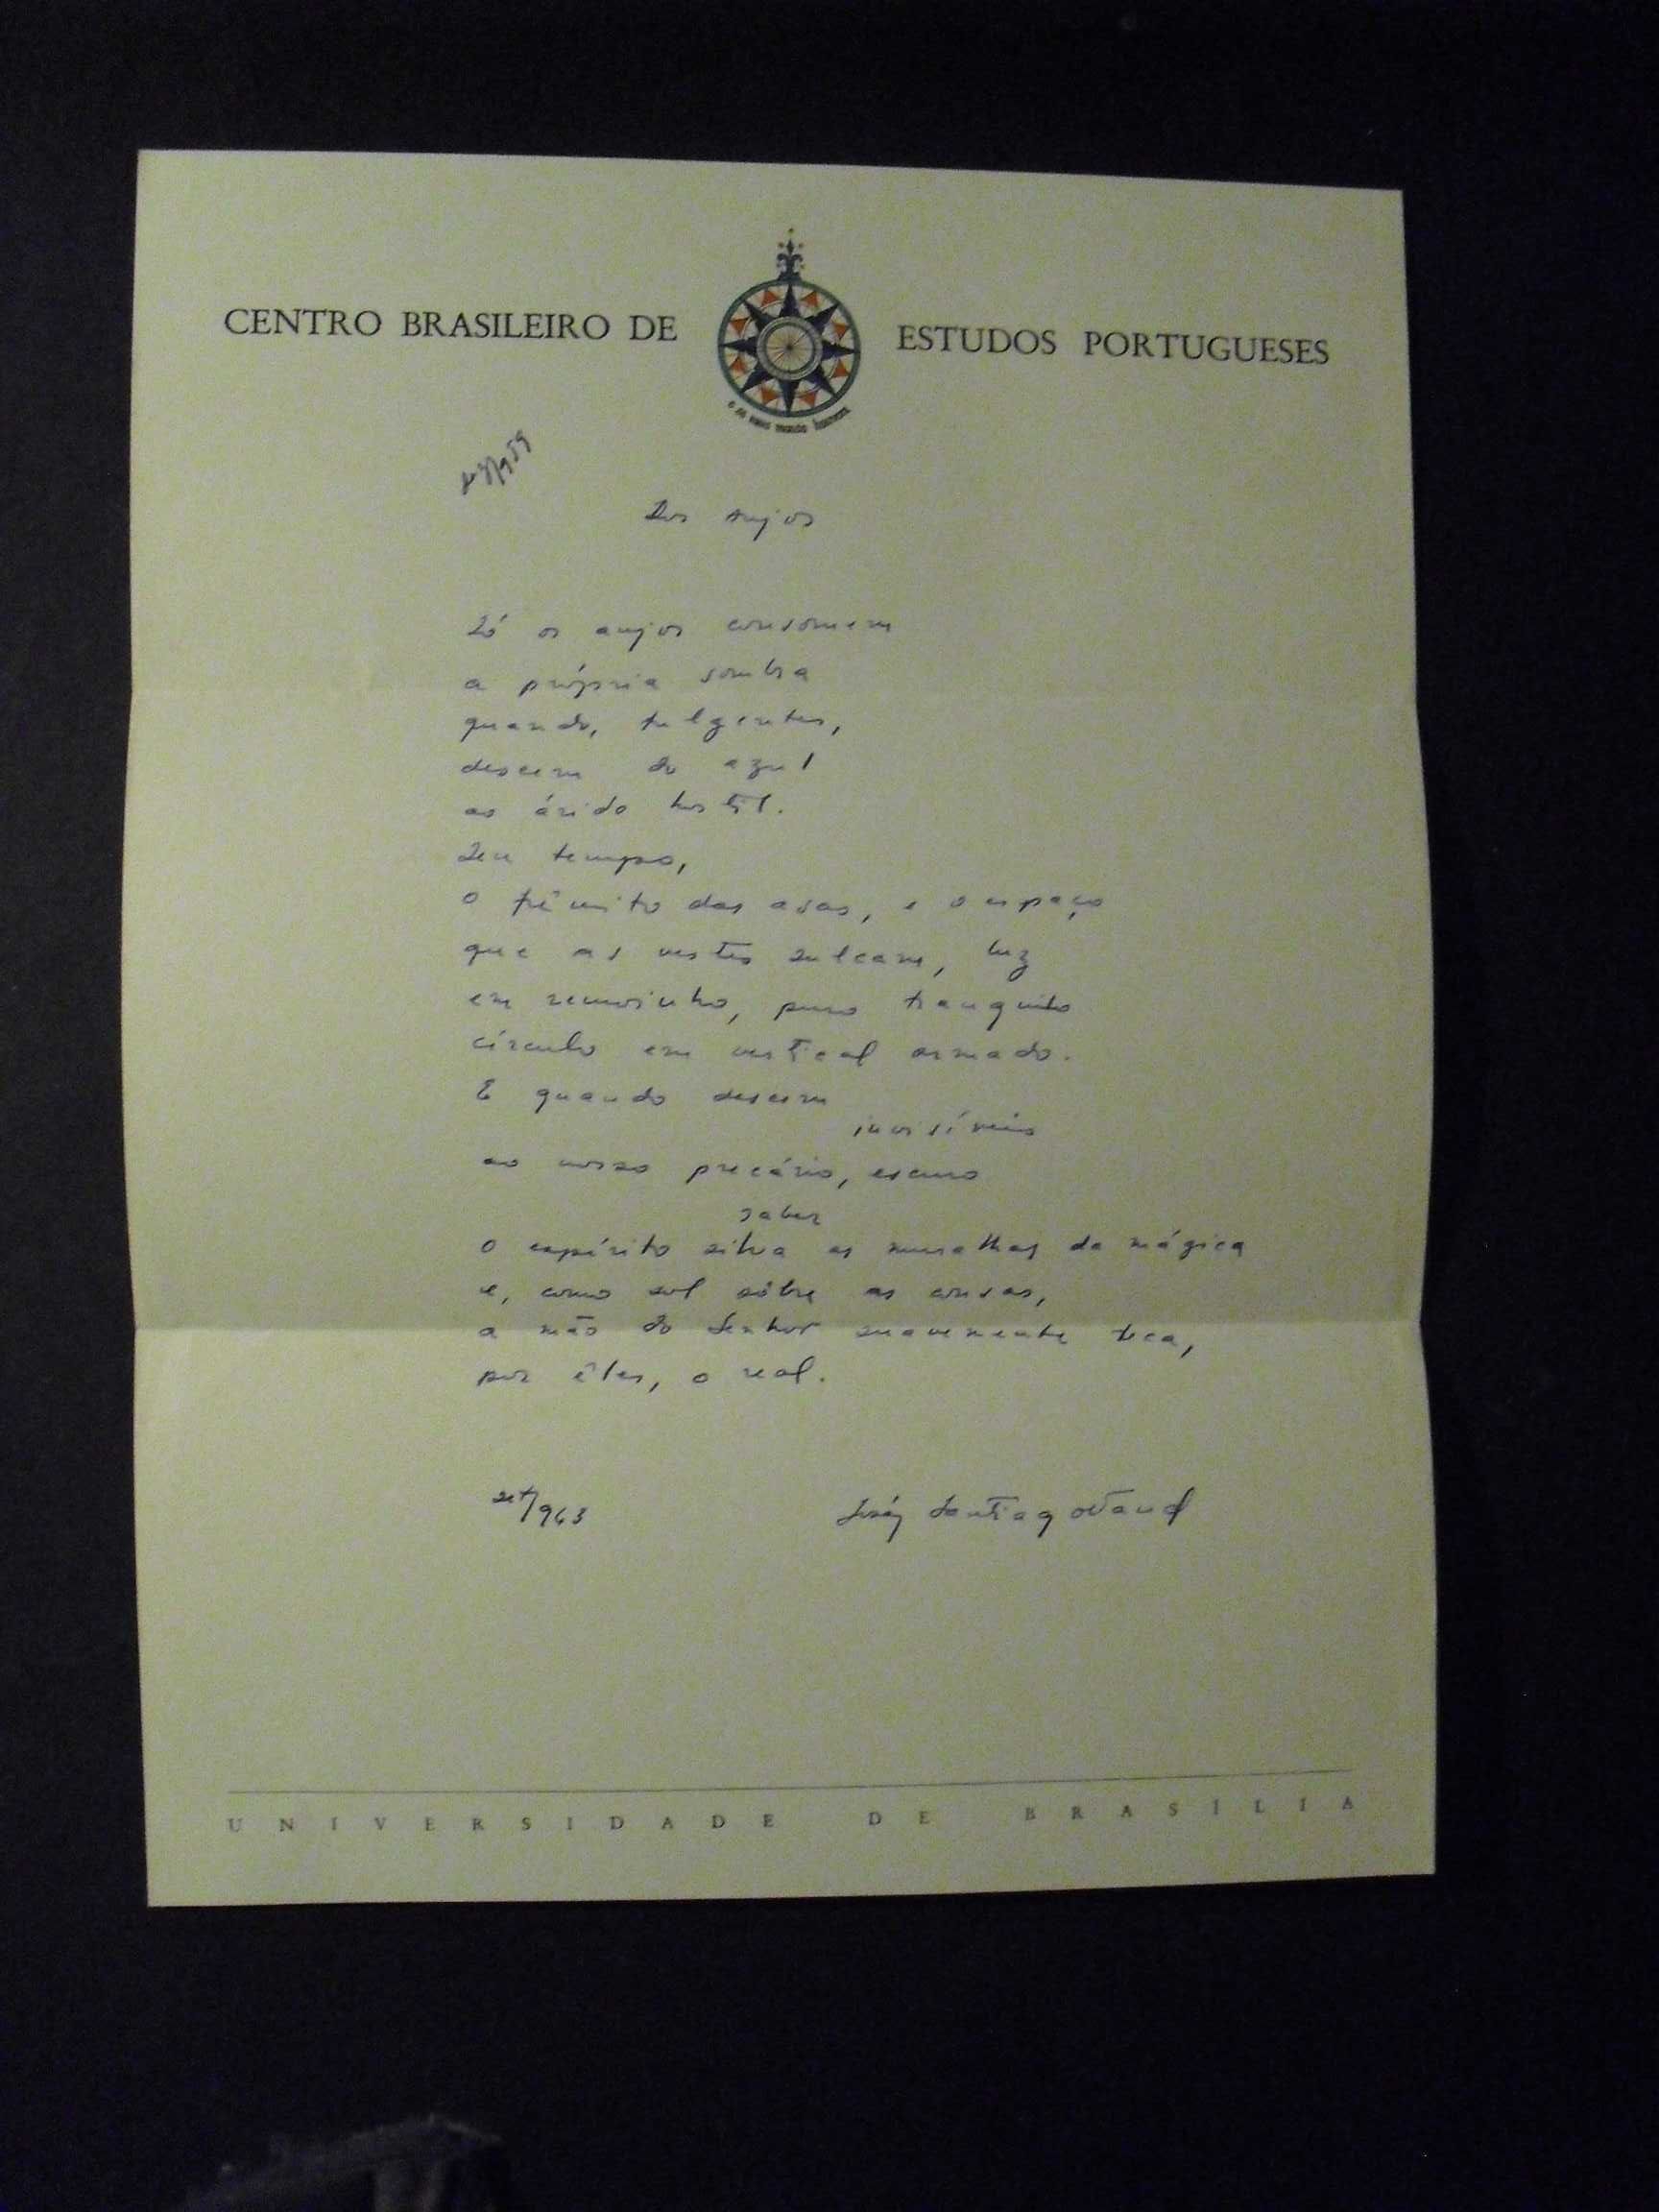 CENTRO BRASILEIRO DE ESTUDOS PORTUGUESES
Dos anjos
Só os anjos consomem
a própria sombra
quando, fulgentes,
descem do azul
ao árido hostil.
Seu tempo,
o frêmito das asas, e o espaço
que as vestes sulcam, luz
em remoinho, puro tranquilo
círculo em vertical armado.
E quando descem
invisíveis
ao nosso precário, escuro
saber
o espírito silva as muralhas da mágica
e, como sol sôbre as cousas,
a mão do Senhor suavemente toca,
por êles, o real.
set/963
Santiago Naud
UNIVERSIDADE DE BRASÍLIA